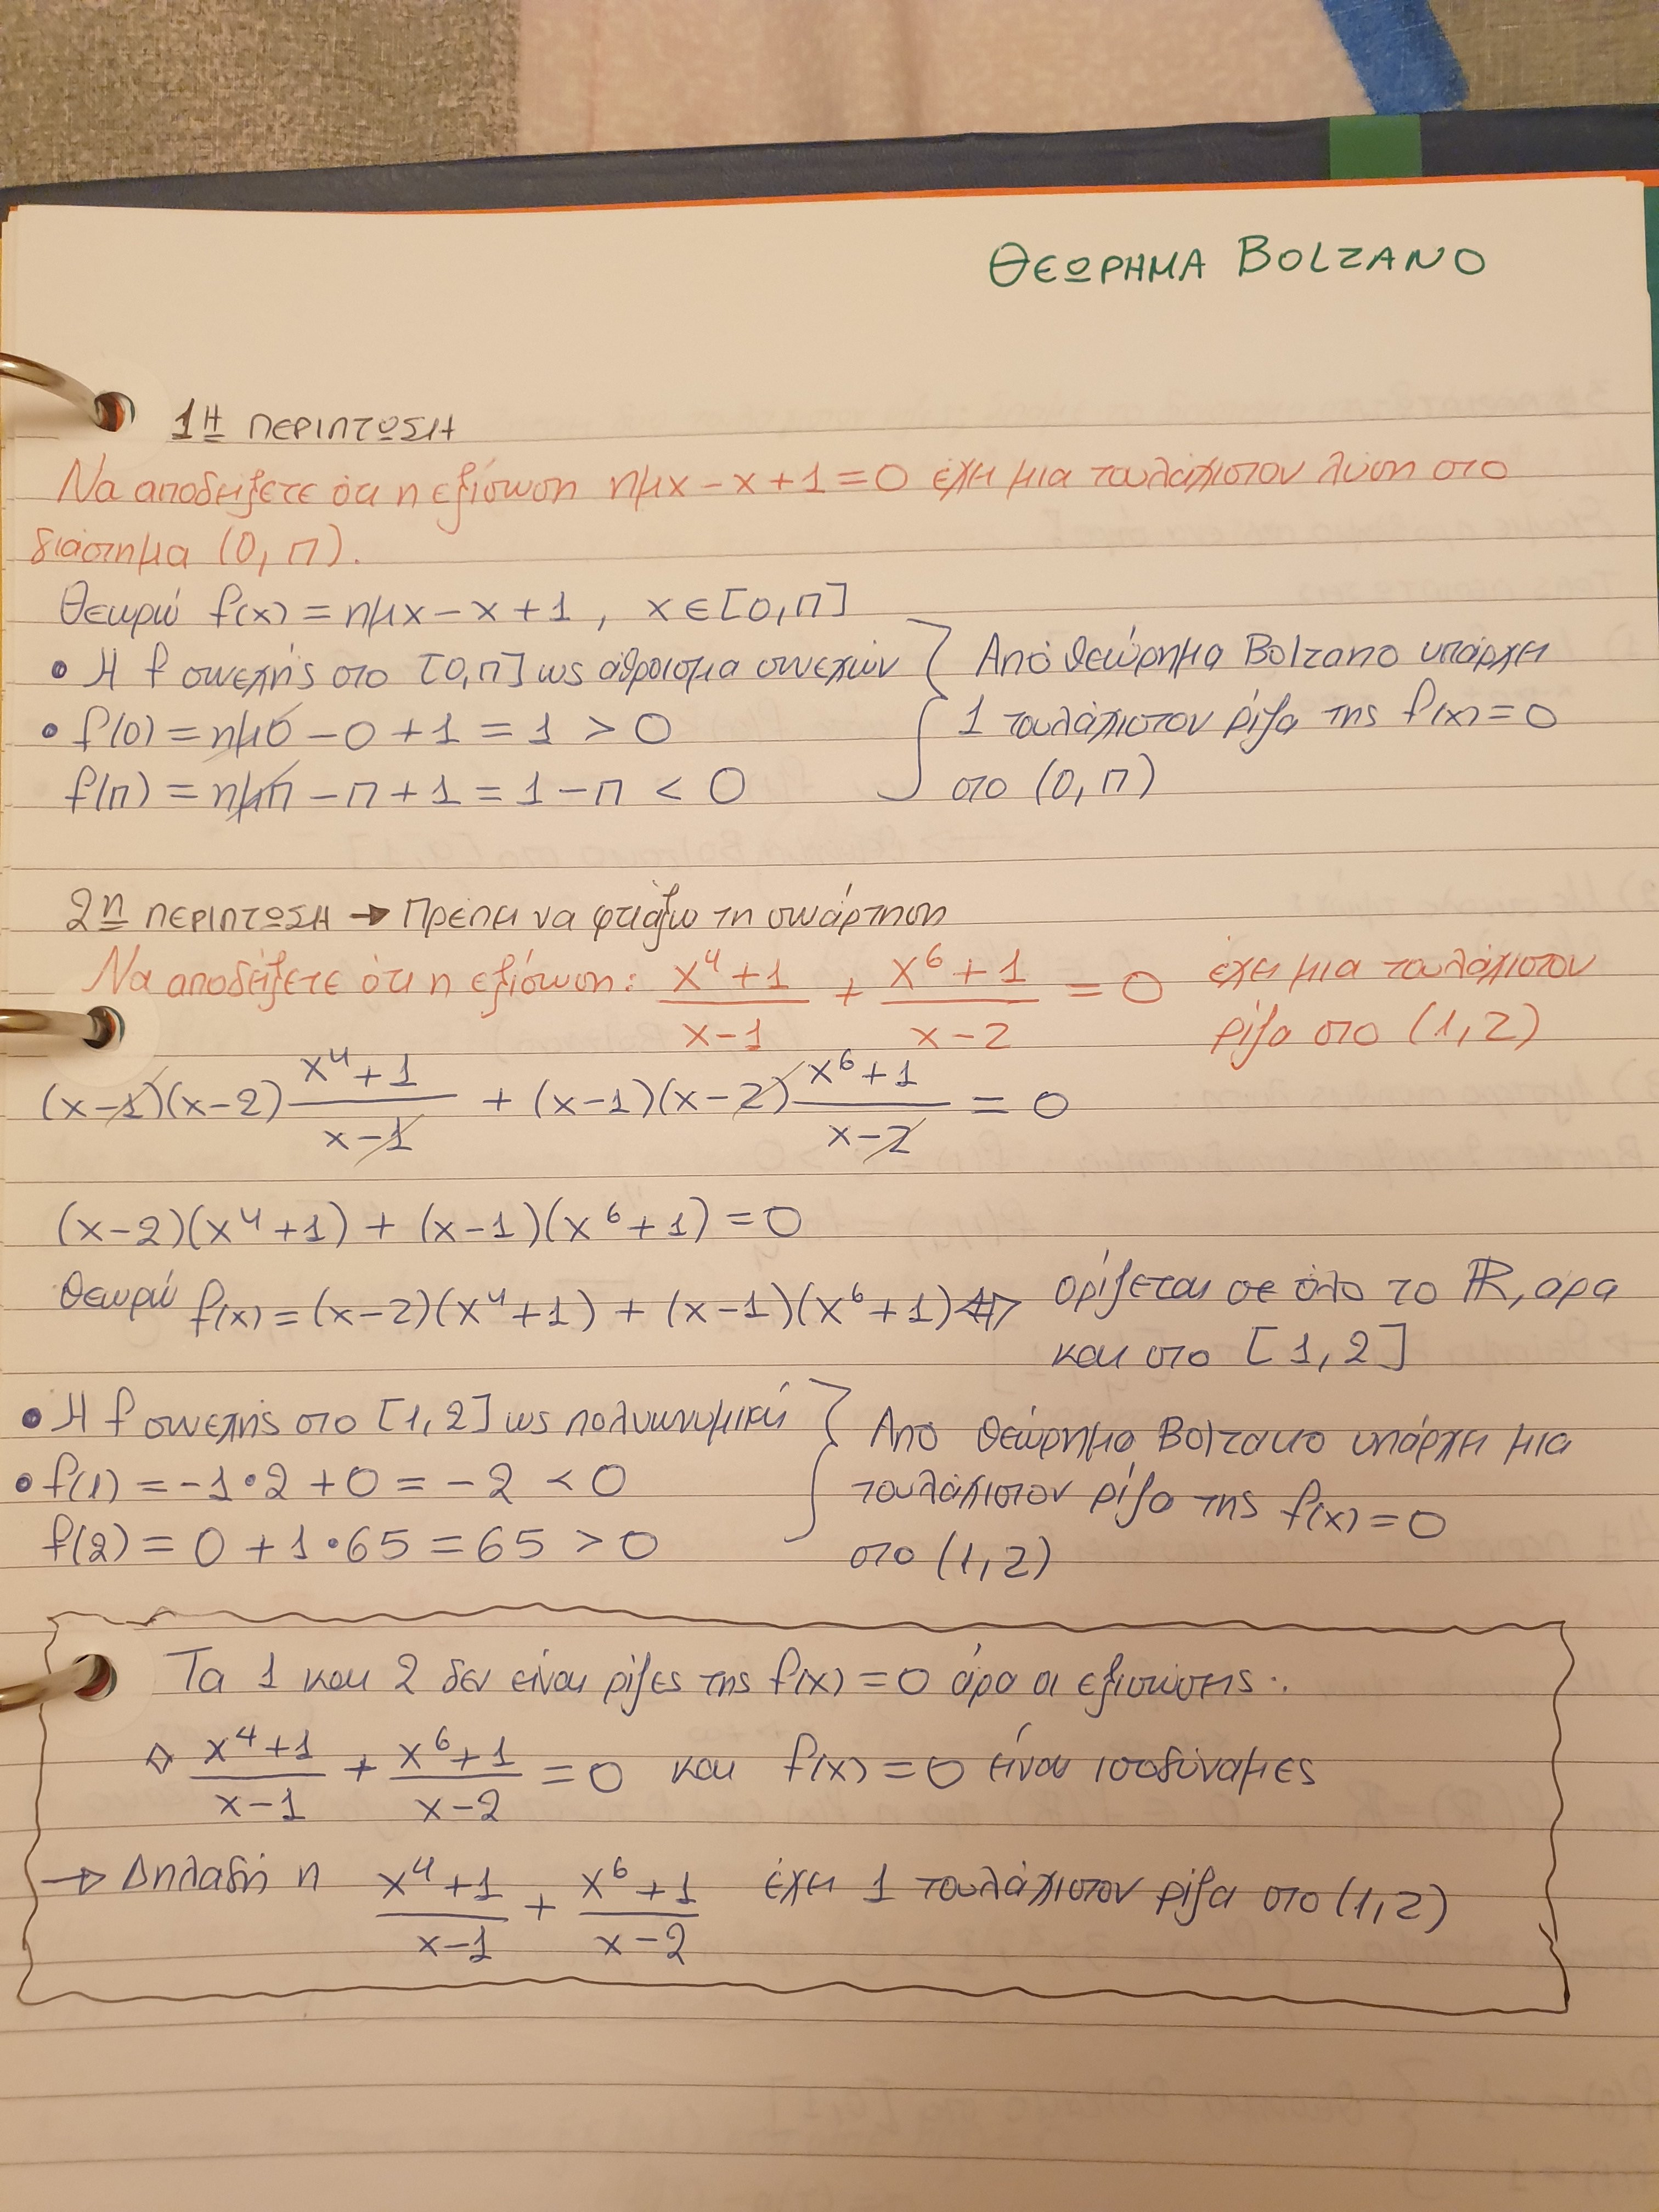 ΘΕΩΡΗΜΑ BOLZANO
1Η ΠΕΡΙΠΤΩΣΗ
Να αποδείξετε ότι η εξίσωση ημx - x + 1 = 0 έχει μια τουλάχιστον λύση στο
διάστημα (0, π).
Θεωρώ f(x) = ημx - x + 1 , x ∈ [0, π]
• Η f συνεχής στο [0, π] ως άθροισμα συνεχών
• f(0) = ημ0 - 0 + 1 = 1 > 0
f(π) = ημπ - π + 1 = 1 - π < 0
Από θεώρημα Bolzano υπάρχει
1 τουλάχιστον ρίζα της f(x) = 0
στο (0, π)
2η ΠΕΡΙΠΤΩΣΗ → Πρέπει να φτιάξω τη συνάρτηση
Να αποδείξετε ότι η εξίσωση: (x⁴+1)/(x-1) + (x⁶+1)/(x-2) = 0 έχει μια τουλάχιστον
ρίζα στο (1, 2)
(x-1)(x-2) (x⁴+1)/(x-1) + (x-1)(x-2) (x⁶+1)/(x-2) = 0
(x-2)(x⁴+1) + (x-1)(x⁶+1) = 0
Θεωρώ f(x) = (x-2)(x⁴+1) + (x-1)(x⁶+1) ορίζεται σε όλο το ℝ, αρα
και στο [1, 2]
• Η f συνεχής στο [1, 2] ως πολυωνυμική
• f(1) = -1•2 + 0 = -2 < 0
f(2) = 0 + 1•65 = 65 > 0
Από θεώρημα Bolzano υπάρχει μια
τουλάχιστον ρίζα της f(x) = 0
στο (1, 2)
Τα 1 και 2 δεν είναι ρίζες της f(x) = 0 άρα οι εξισώσεις:
◇ (x⁴+1)/(x-1) + (x⁶+1)/(x-2) = 0 και f(x) = 0 είναι ισοδύναμες
→ Δηλαδή η (x⁴+1)/(x-1) + (x⁶+1)/(x-2) έχει 1 τουλάχιστον ρίζα στο (1, 2)